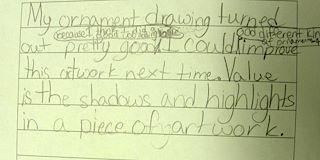 My ornament drawing turned
because I
out pretty good. I could improve
add different kin
this artwork next time. Value
is the shadows and highlights
in a piece of art work.